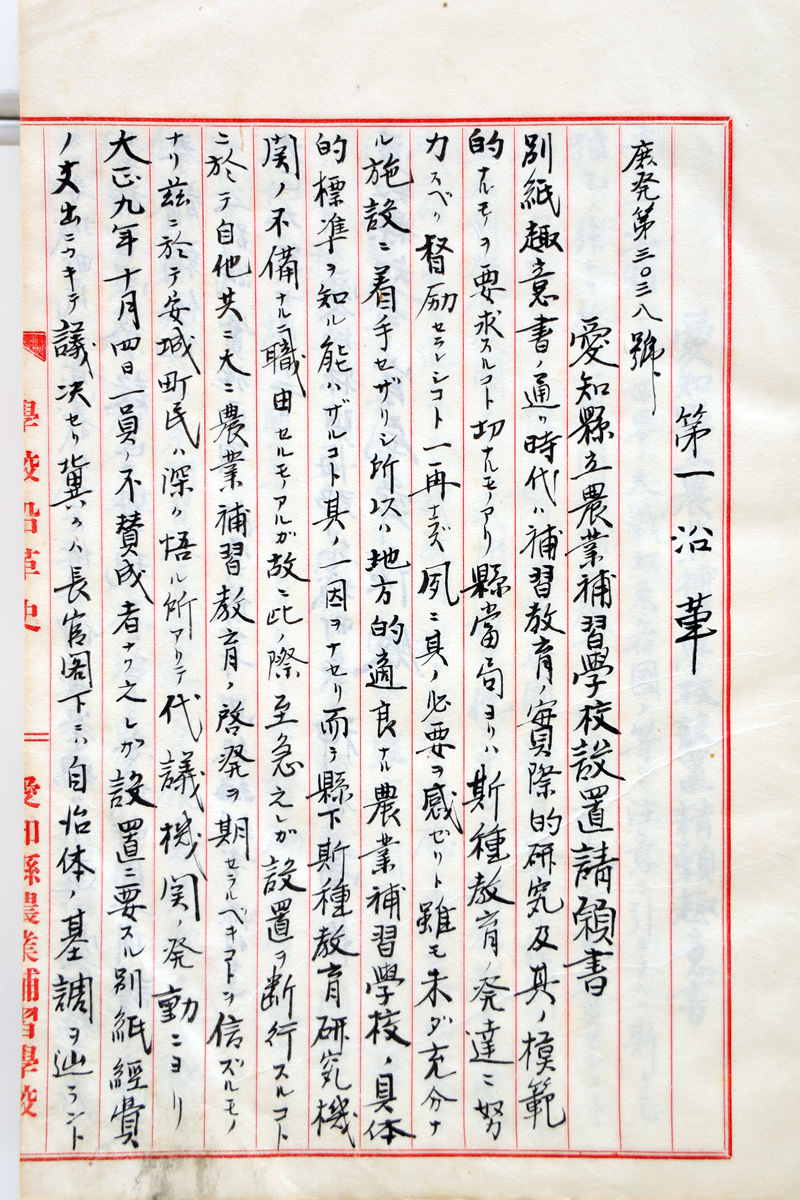 第一沿革
庶発第三〇三八號
愛知縣立農業補習學校設置請願書
別紙趣意書ノ通リ時代ハ補習教育ノ實際的研究及其ノ模範
的ナルモノヲ要求スルコト切ナルモノアリ縣當局ヨリハ斯種教育ノ発達ニ努
力スベク督励セラレシコト一再ナラズ夙ニ其ノ必要ヲ感ゼリト雖モ未ダ充分ナ
ル施設ニ着手セザリシ所以ハ地方的適良ナル農業補習學校ノ具体
的標準ヲ知ル能ハザルコト其ノ一因ヲナセリ而テ縣下斯種教育研究機
関ノ不備ナルニ職由セルモノアルガ故ニ此ノ際至急之レガ設置ヲ断行スルコト
ニ於テ自他共ニ大ニ農業補習教育ノ啓発ヲ期セラルベキコトヲ信ズルモノ
ナリ茲ニ於テ安城町民ハ深ク悟ル所アリテ代議機関ノ発動ニヨリ
大正九年十月四日一員ノ不賛成者ナク之レガ設置ニ要スル別紙經費
ノ支出ニツキテ議決セリ冀クハ長官閣下ニハ自治体ノ基調ヲ辿ラント
學校沿革史
愛知縣農業補習學校